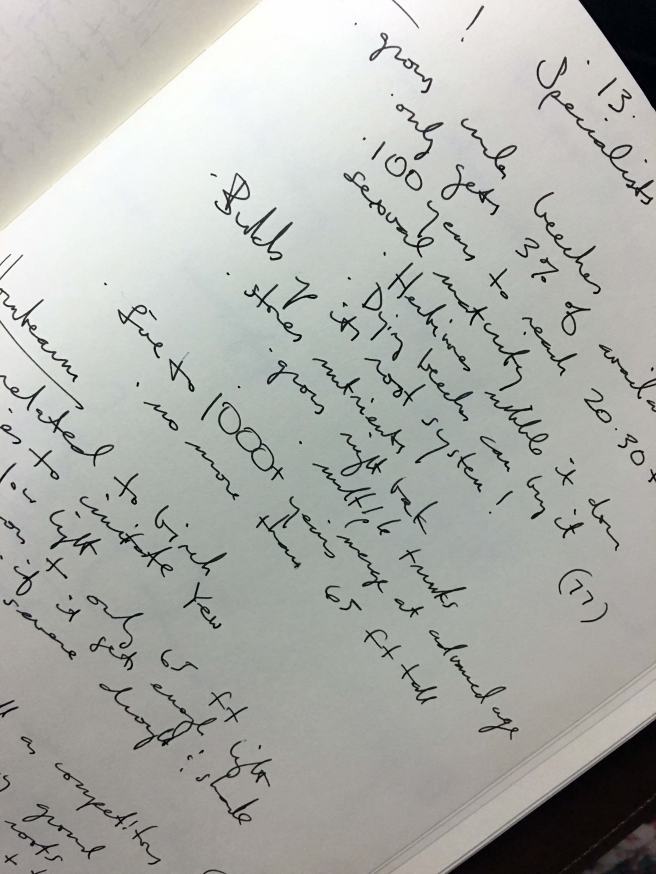 · 13.
Specialists
!
· grows under beeches
· only gets 3% of
· 100 years to reach 20-30+
sexual maturity
· Herbivores nibble it down
· Dying beeches can bury it (77)
· Builds up its root system!
· stores nutrients
· grows right back
· multiple trunks merge at advanced age
· live to 1000+ years
· no more than 65 ft tall
Hornbeam
related to birch
to imitate Yew
low light
only 65 ft
if it gets enough light
severe drought & shade
as competitors
ground
roots